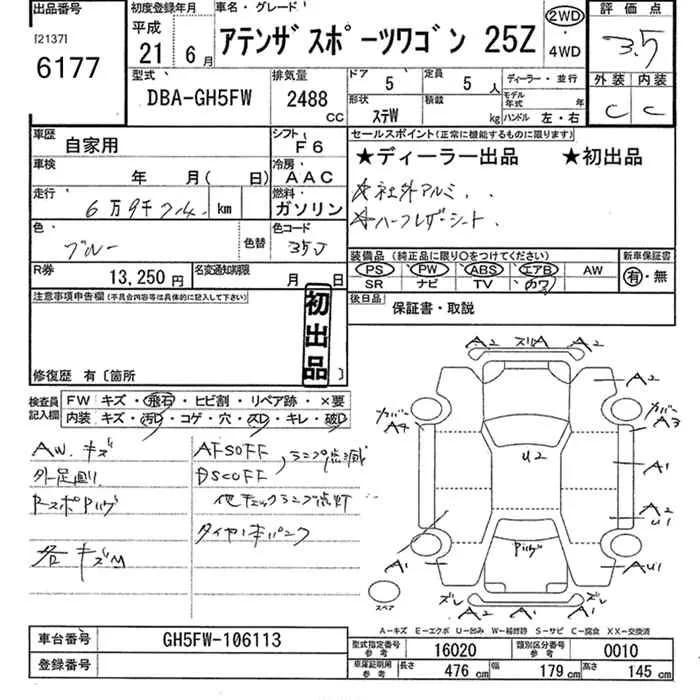 出品番号 初度登録年月 車名・グレード 評価点
[2137] 6177
平成 21年 6月 アテンザスポーツワゴン 25Z 2WD・4WD 3.5
型式 DBA-GH5FW 排気量 2488 CC
ドア 5 定員 5人 ディーラー・並行
形状 ステW 積載 kg モデル年式 年 ハンドル 左・右
外装 C 内装 C
車歴 自家用 シフト F6
車検 年 月( 日) 冷房 AAC
走行 6万9千フル. km 燃料 ガソリン
色 ブルー 色替 色コード 35J
R券 13,250円 名変通知期限 月 日
セールスポイント(正常に機能するものに限ります)
★ディーラー出品 ★初出品
☆社外アルミ..
☆ハーフレザーシート.
装備品(純正品に限り○をつけてください) 新車保証書
PS PW ABS エアB AW 有・無
SR ナビ TV カワ
後日品 保証書・取説
注意事項申告欄(不具合内容等は具体的に記入して下さい)
初出品
修復歴 有〔箇所 〕
検査員記入欄
FW キズ・飛石・ヒビ割・リペア跡・×要
内装 キズ・汚D・コゲ・穴・スD・キレ・破D
AW. キズ
外足廻り
各キズM
AFSOFF
DSCOFF ランプ点滅
他チェックランプ点灯
タイヤ1本パンク
A2 スリA A2
A2
カバー A4
カバー A3
U2
A1
A2 U1
A1
AU1
スペア
ズレ A2 A1 A1 ズレ
A-キズ E-エクボ U-凹み W-補修跡 S-サビ C-腐食 XX-交換済
車台番号 GH5FW-106113
登録番号
型式指定番号参考 16020 類別区分番号参考 0010
車庫証明用参考 長さ 476cm 幅 179cm 高さ 145cm